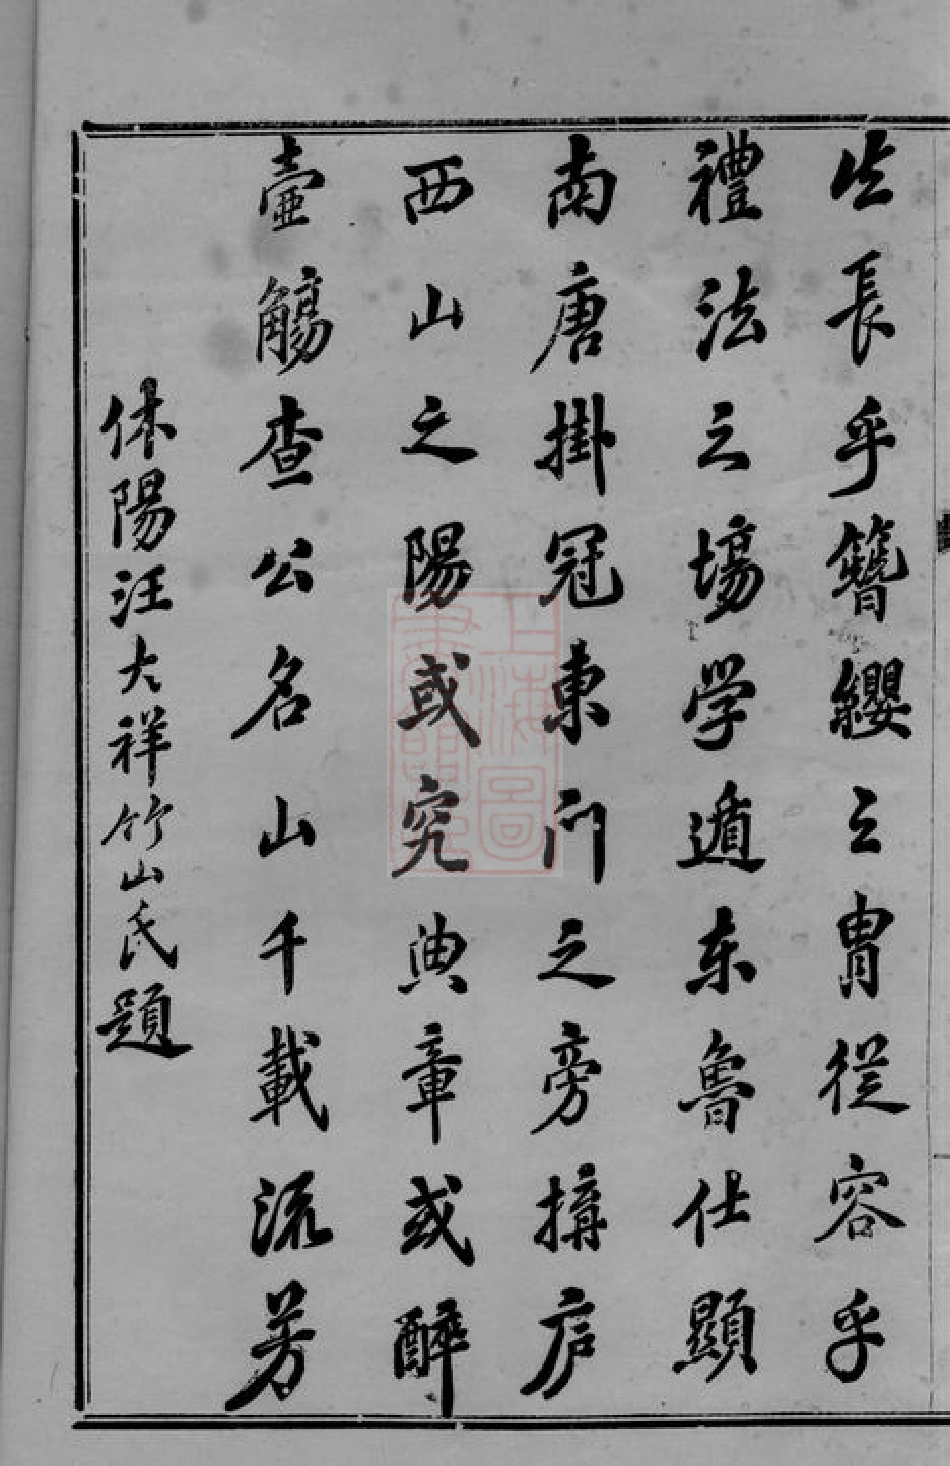 生長乎簪纓之冑從容乎
禮法之場學遁東魯仕顯
南唐掛冠東門之旁搆廬
西山之陽或究典章或醉
壺觴查公名山千載流芳
休陽汪大祥竹山氏題
上海圖書館藏